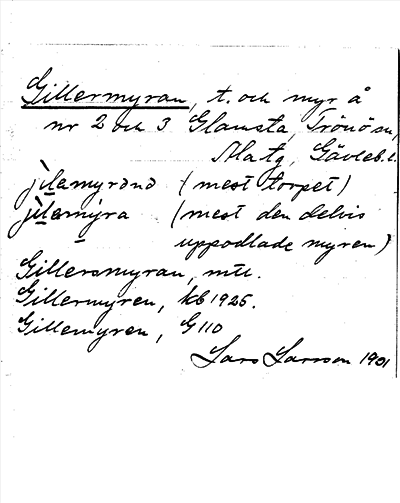 Gillermyran, t. och myr å
nr 2 och 3 Glamsta, Trönö sn,
Gävleb. l.
jìlamyrənə (mest torpet)
jìlamýra (mest den delvis
uppodlade myren)
Gillersmyran, mtl.
Gillermyren, kb 1925.
Gillemyren, G 110
Lars Larsson 1901